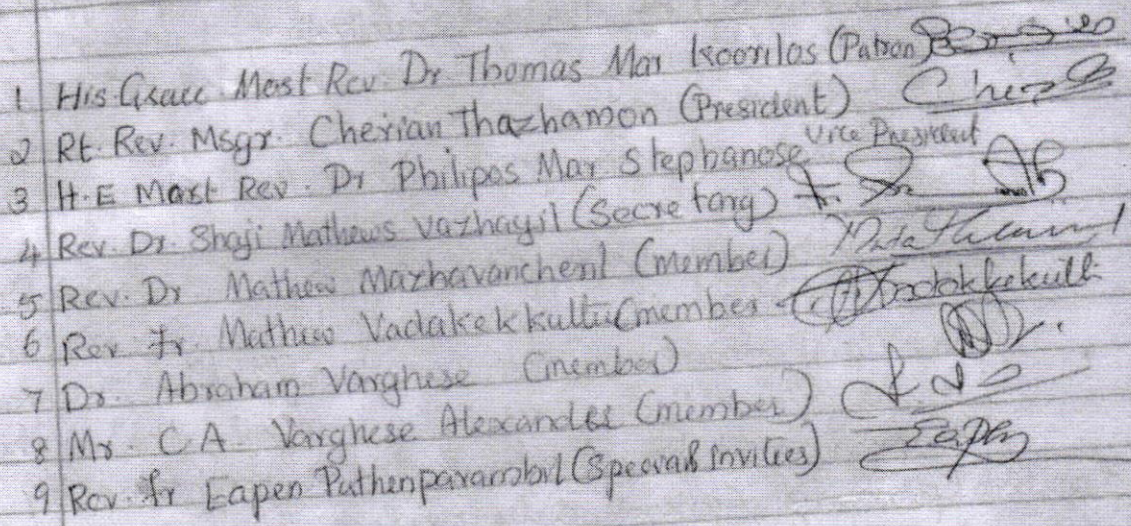 1 His Grace Most Rev. Dr. Thomas Mar Koorilos (Patron)
2 Rt. Rev. Msgr. Cherian Thazhamon (President)
3 H.E Most Rev. Dr Philipos Mar Stephanose Vice President
4 Rev. Dr. Shaji Mathews Vazhayil (Secretary)
5 Rev. Dr Mathew Mazhavancheril (member)
6 Rev Fr. Mathew Vadakekkuttu (member Vadakkekuttu
7 Dr. Abraham Varghese (member)
8 Mr. C.A. Varghese Alexander (member)
9 Rev. Fr Eapen Puthenparambil (Special invitees) Eapen